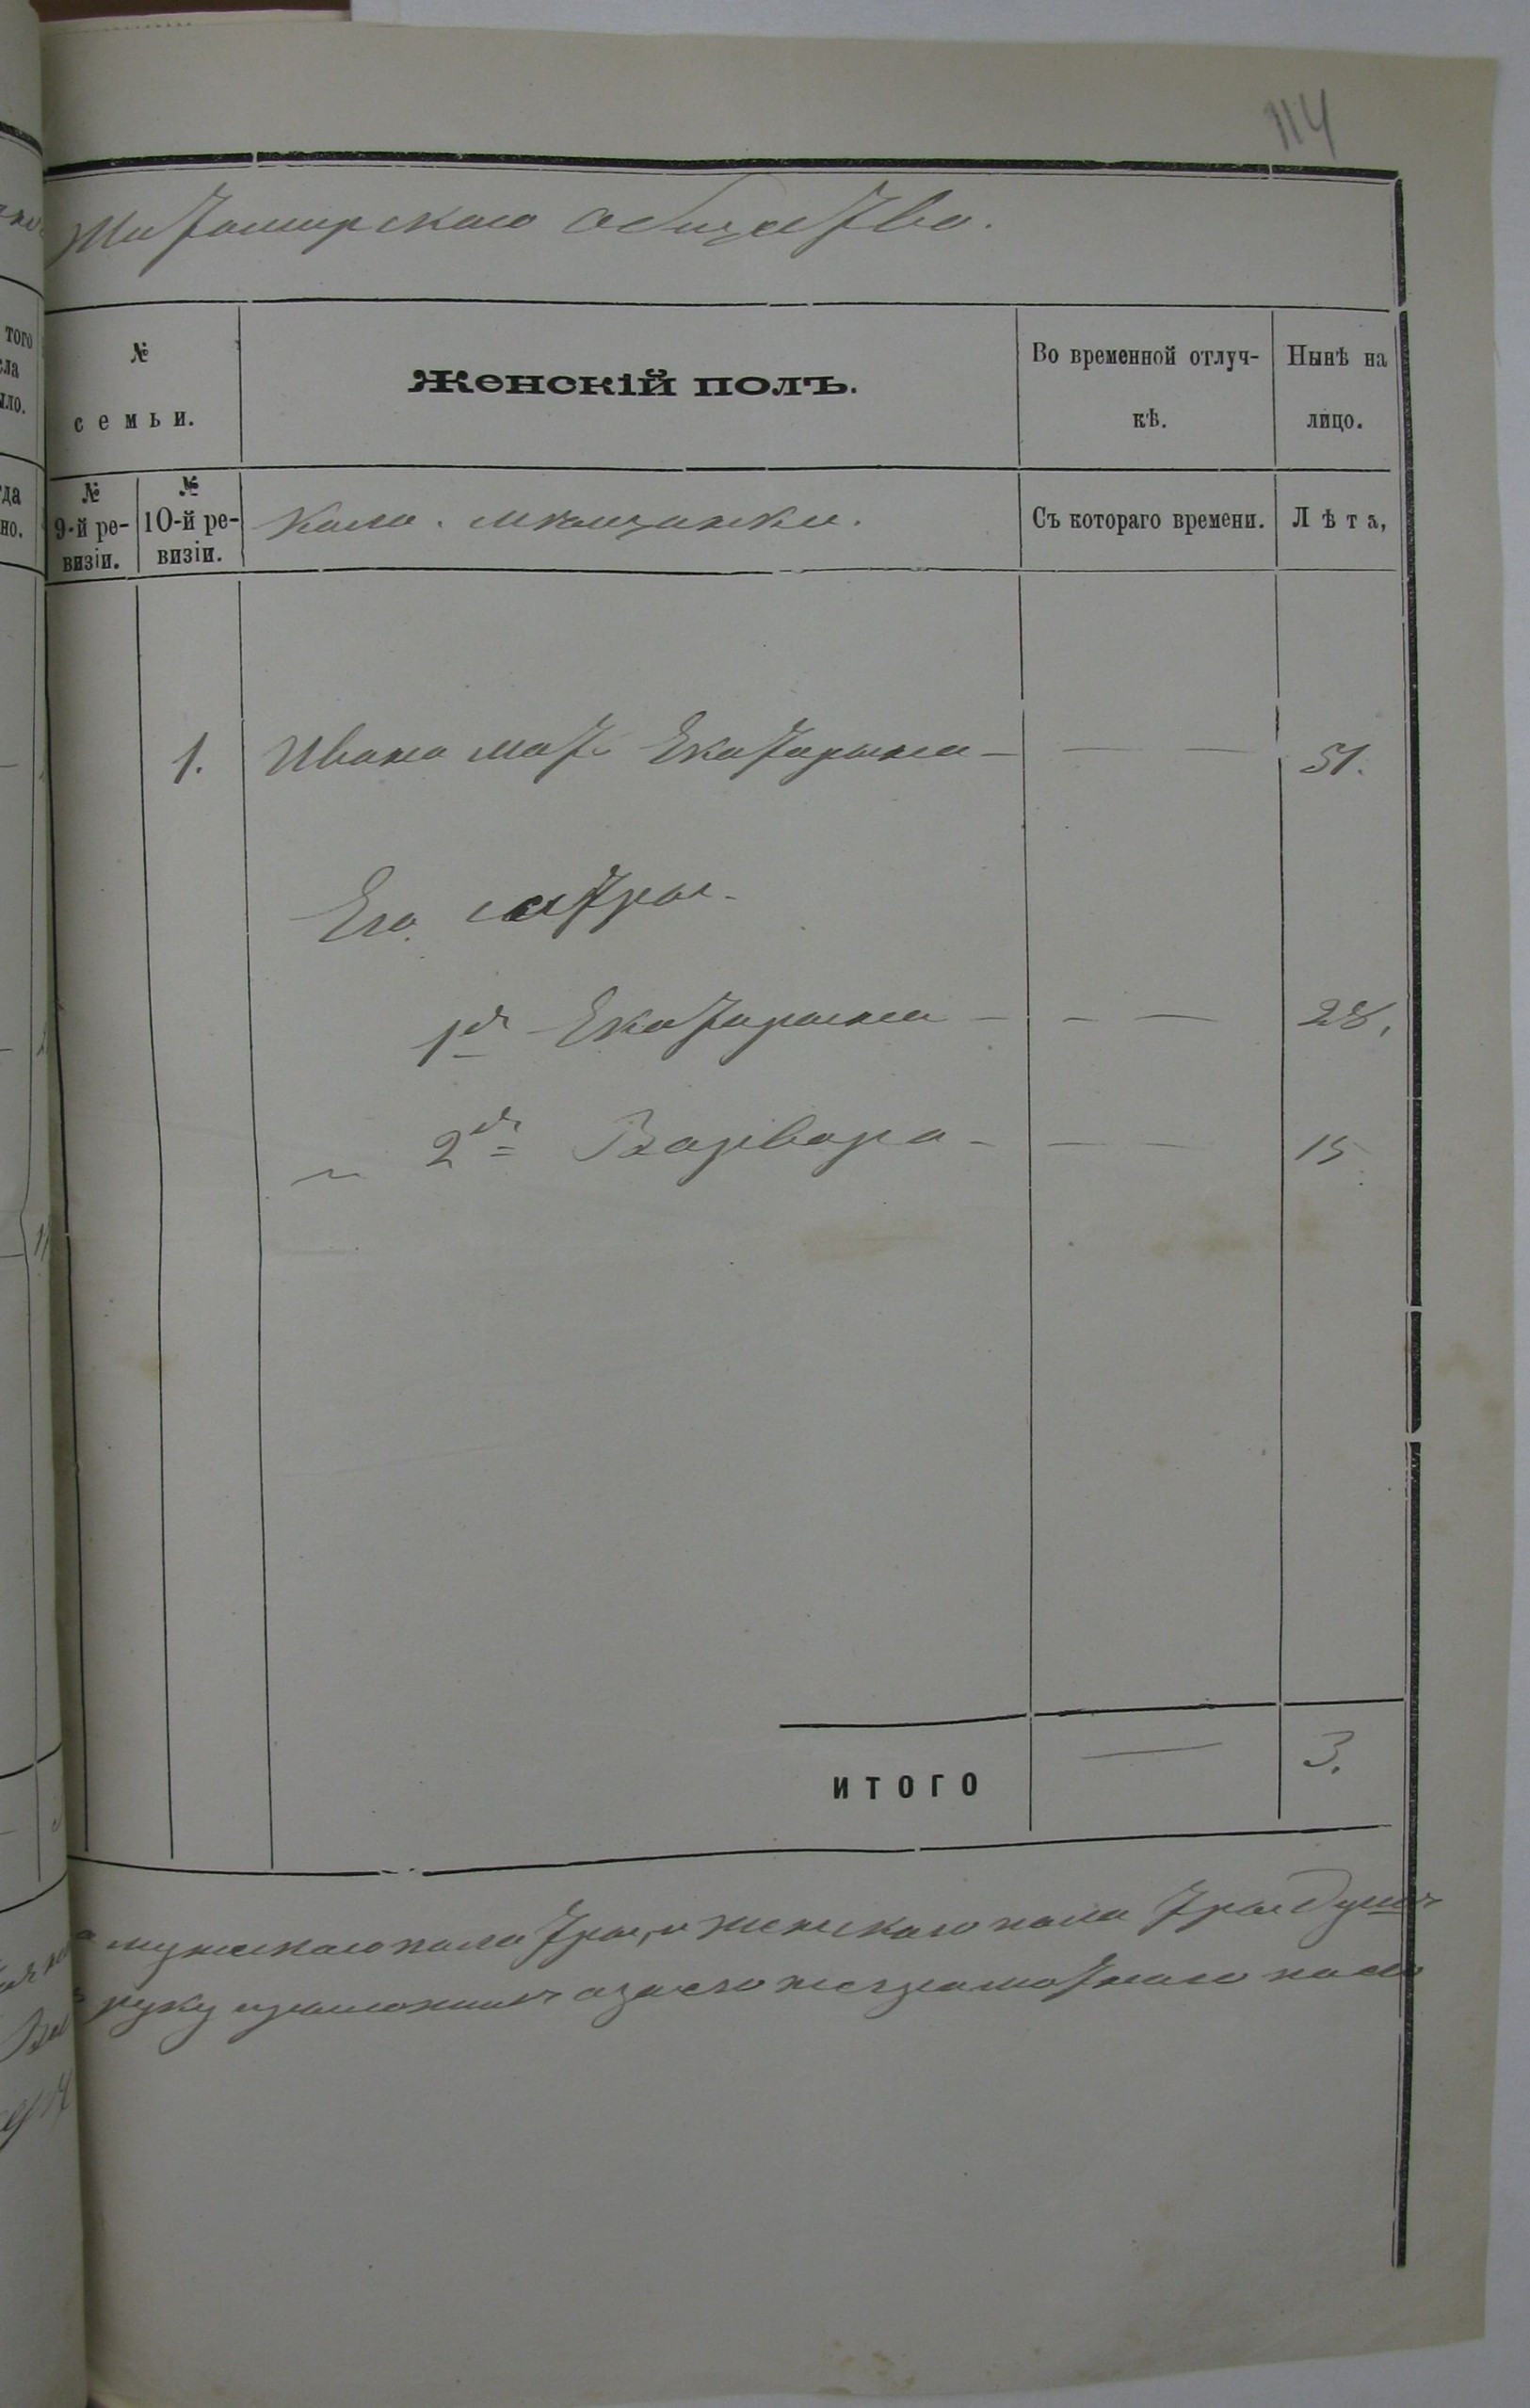 114
Житомирскаго общества.
№
семьи.
Женскій полъ.
Во временной отлуч-
кѣ.
Нынѣ на
лицо.
№
9-й ре-
визіи.
№
10-й ре-
визіи.
мѣщанки.
Съ котораго времени.
Лѣта,
того
да
но.
1. Ивана мать Екатерина — — — 51.
Его сестры.
1я Екатерина — — — 28.
2я Варвара — — — 15
ИТОГО — 3.
мужескаго пола три, и женскаго пола три душъ
руку приложилъ неграмотнаго